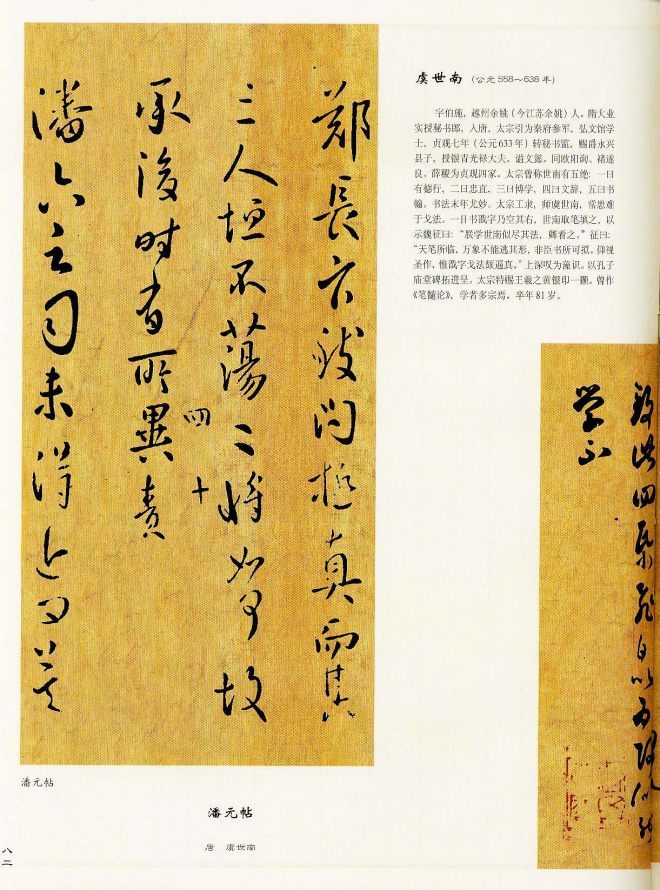 鄭長官致問極真而其
三人恒不蕩〻將如何故
四十
承後時有所異責
潘六云司未得近問莫
虞世南 (公元558～638年)
字伯施，越州余姚（今江苏余姚）人。隋大业
实授秘书郎，入唐，太宗引为秦府参军，弘文馆学
士，贞观七年（公元633年）转秘书监，赐爵永兴
县子，授银青光禄大夫，谥文懿。同欧阳询、褚遂
良、薛稷为贞观四家。太宗曾称世南有五绝：一曰
有德行，二曰忠直，三曰博学，四曰文辞，五曰书
翰。书法末年尤妙。太宗工隶，师虞世南，常患难
于戈法。一日书戬字乃空其右，世南取笔填之，以
示魏征曰：“朕学世南似尽其法，卿看之。”征曰：
“天笔所临，万象不能逃其形，非臣书所可拟。仰视
圣作，惟戬字戈法颇逼真。”上深叹为藻识。以孔子
庙堂碑拓进呈，太宗特赐王羲之黄银印一颗。曾作
《笔髓论》，学者多宗焉。卒年81岁。
学
潘元帖
潘元帖
唐 虞世南
八二